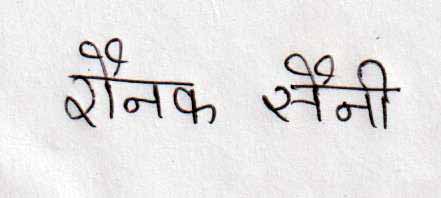 रौनक सैनी